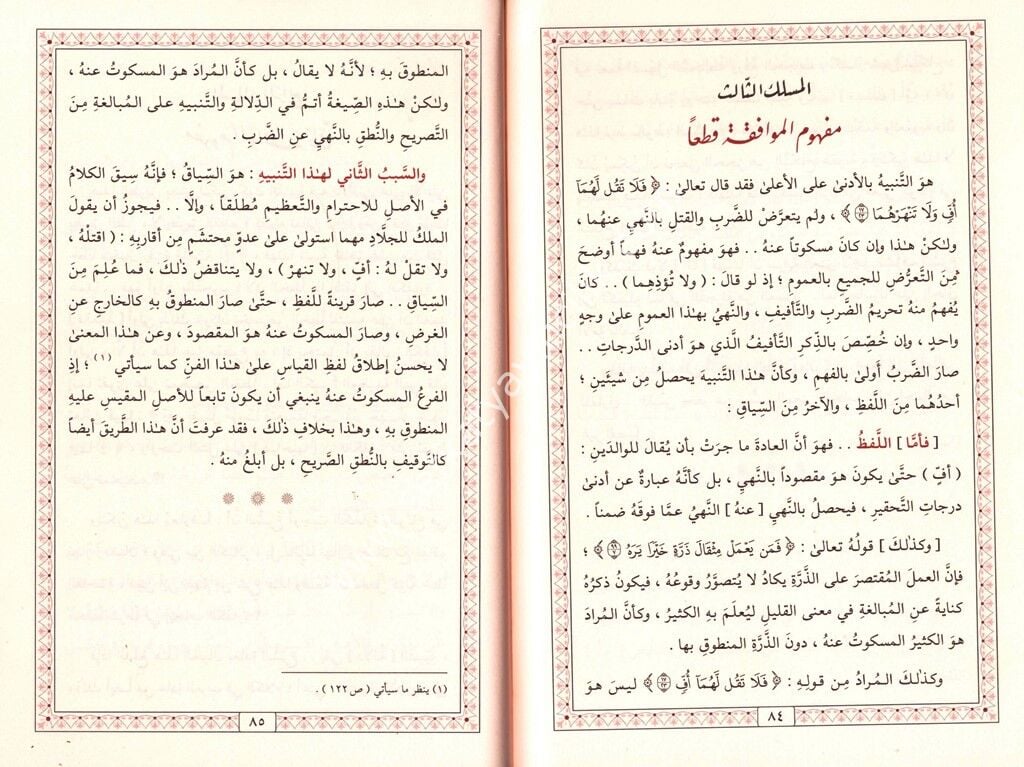 المسلك الثالث
مفهوم الموافقة قطعاً
هوَ التَّنبيهُ بالأدنىٰ على الأعلىٰ فقد قال تعالىٰ : ﴿ فَلَا تَقُل لَّهُمَآ
أُفٍّ وَلَا تَنْهَرْهُمَا ﴾ ، ولم يتعرَّضْ للضَّربِ والقتلِ بالنَّهيِ عنهُما ،
ولـٰكنْ هـٰذا وإن كانَ مسكوتاً عنهُ . . فهوَ مفهومٌ عنهُ فهماً أوضحَ
مِنَ التَّعرُّضِ للجميعِ بالعمومِ ؛ إذ لو قالَ : ( ولا تُؤذِهِما ) . . كانَ
يُفهمُ منهُ تحريمُ الضَّربِ والتَّأفيفِ ، والنَّهيُ بهـٰذا العمومِ علىٰ وجهٍ
واحدٍ ، وإن خُصِّصَ بالذِّكرِ التَّأفيفُ الَّذي هوَ أدنى الدَّرجاتِ . .
صارَ الضَّربُ أولىٰ بالفهمِ ، وكأنَّ هـٰذا التَّنبيهَ يحصلُ مِن شيئَينِ ؛
أحدُهُما مِنَ اللَّفظِ ، والآخرُ مِنَ السِّياقِ :
[ فأمَّا ] اللَّفظُ . . فهوَ أنَّ العادةَ ما جرَتْ بأن يُقالَ للوالدَينِ :
( أفّ ) حتَّىٰ يكونَ هوَ مقصوداً بالنَّهيِ ، بل كأنَّهُ عبارةٌ عن أدنىٰ
درجاتِ التَّحقيرِ ، فيحصلُ بالنَّهيِ [ عنهُ ] النَّهيُ عمَّا فوقَهُ ضمناً .
[ وكذٰلكَ ] قولُهُ تعالىٰ : ﴿ فَمَن يَعْمَلْ مِثْقَالَ ذَرَّةٍ خَيْرًا يَرَهُ ﴾ ؛
فإنَّ العملَ المُقتصرَ على الذَّرَّةِ يكادُ لا يُتصوَّرُ وقوعُهُ ، فيكونُ ذكرُهُ
كنايةً عنِ المُبالغةِ في معنى القليلِ ليُعلَمَ بهِ الكثيرُ ، وكأنَّ المُرادَ
هوَ الكثيرُ المسكوتُ عنهُ ، دونَ الذَّرَّةِ المنطوقِ بها .
وكذٰلكَ المُرادُ مِن قولِهِ : ﴿ فَلَا تَقُل لَّهُمَآ أُفٍّ ﴾ ليسَ هوَ
٨٤
المنطوقَ بهِ ؛ لأنَّهُ لا يقالُ ، بل كأنَّ المُرادَ هوَ المسكوتُ عنهُ ،
ولـٰكنْ هـٰذهِ الصِّيغةُ أتمُّ في الدِّلالةِ والتَّنبيهِ على المُبالغةِ مِنَ
التَّصريحِ والنُّطقِ بالنَّهيِ عنِ الضَّربِ .
والسَّببُ الثَّاني لهـٰذا التَّنبيهِ : هوَ السِّياقُ ؛ فإنَّهُ سِيقَ الكلامُ
في الأصلِ للاحترامِ والتَّعظيمِ مُطلَقاً ، وإلَّا . . فيجوزُ أن يقولَ
الملكُ للجلَّادِ مهما استولىٰ علىٰ عدوٍّ محتشَمٍ مِن أقاربِهِ : ( اقتلْهُ ،
ولا تقلْ لهُ : أفّ ، ولا تنهرْ ) ، ولا يتناقضُ ذٰلكَ ، فما عُلِمَ مِنَ
السِّياقِ . . صارَ قرينةً للَّفظِ ، حتَّىٰ صارَ المنطوقُ بهِ كالخارجِ عنِ
الغرضِ ، وصارَ المسكوتُ عنهُ هوَ المقصودَ ، وعن هـٰذا المعنىٰ
لا يحسنُ إطلاقُ لفظِ القياسِ علىٰ هـٰذا الفنِّ كما سيأتي (١) ؛ إذِ
الفرعُ المسكوتُ عنهُ ينبغي أن يكونَ تابعاً للأصلِ المقيسِ عليهِ
المنطوقِ بهِ ، وهـٰذا بخلافِ ذٰلكَ ، فقد عرفتَ أنَّ هـٰذا الطَّريقَ أيضاً
كالتَّوقيفِ بالنُّطقِ الصَّريحِ ، بل أبلغُ منهُ .
(١) ينظر ما سيأتي ( ص ١٢٢ ) .
٨٥